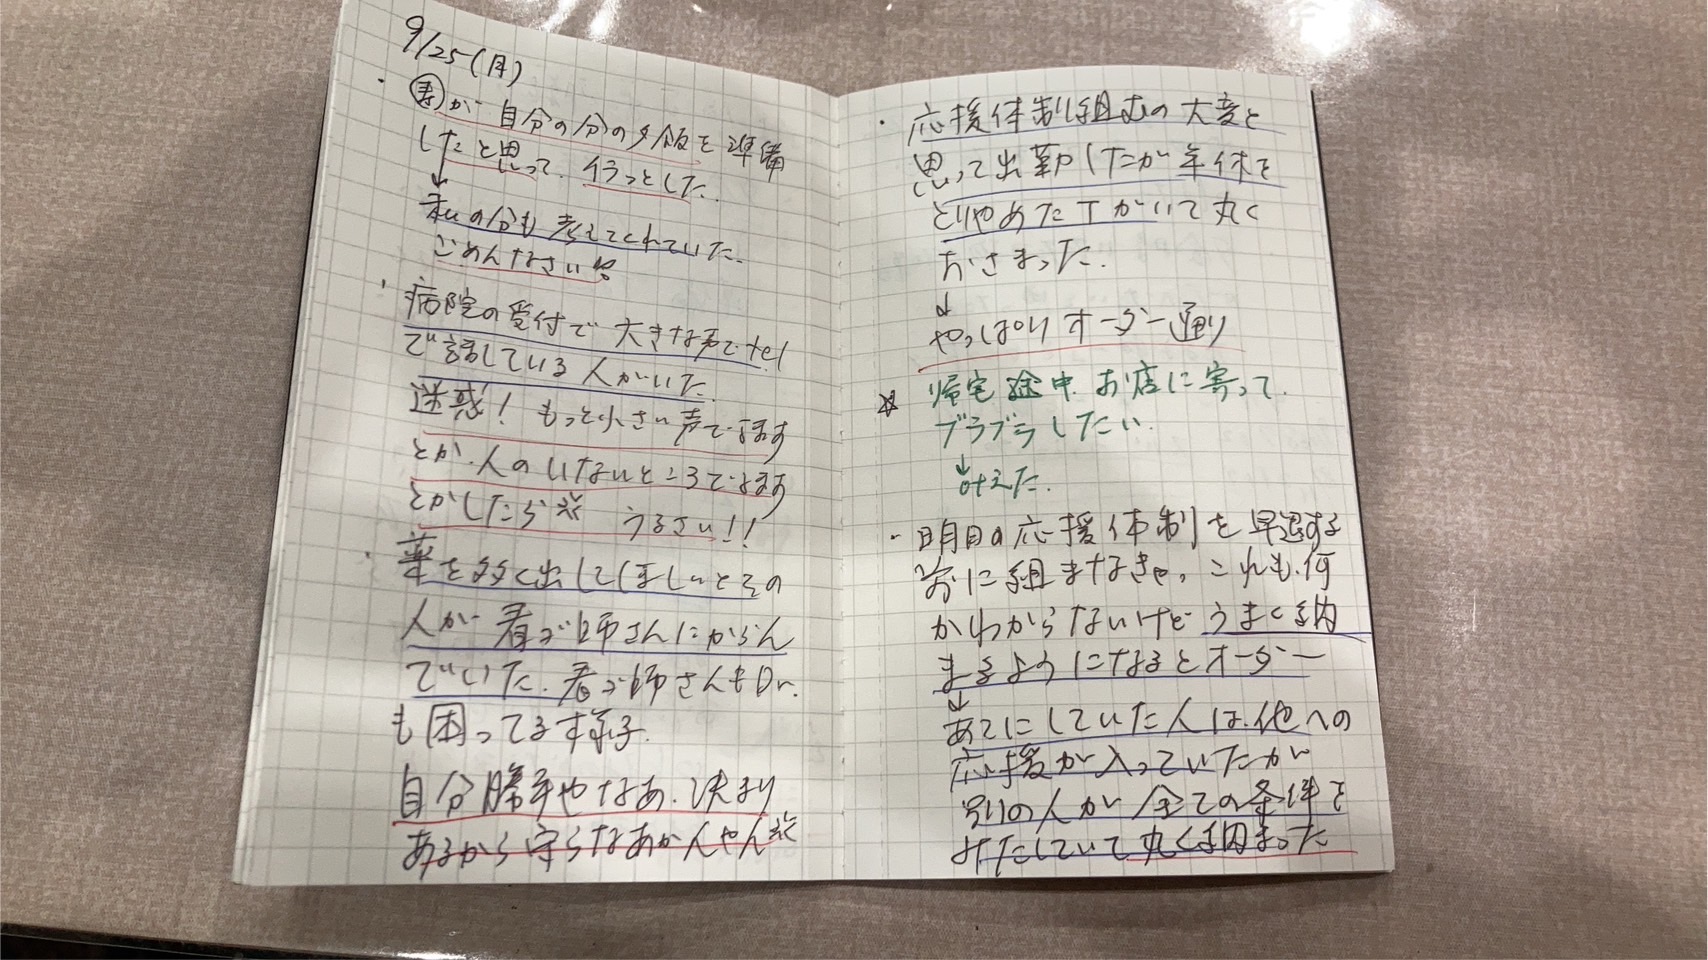 9/25(月)
・妻が自分の分の夕飯を準備
したと思って、イラっとした。
↓
私の分も考えてくれていた。
ごめんなさい
・病院の受付で大きな声でtel
で話している人がいた。
迷惑！もっと小さい声で話す
とか、人のいないところで話す
とかしたら うるさい!!
・薬を多く出してほしいとその
人が看ゴ師さんにからん
でいた。看ゴ師さんもDr.
も困ってる様子。
自分勝手やなあ、決まり
あるから守らなあかんやん
・応援体制組むの大変と
思って出勤したが年休を
とりやめた人がいて丸く
おさまった。
↓
やっぱりオーダー通り
☆帰宅途中、お店に寄って、
ブラブラしたい。
↓叶えた。
・明日の応援体制を早退する
前に組まなきゃ。これも、何
かわからないけどうまく納
まるようになるとオーダー
↓
あてにしていた人は、他への
応援が入っていたが
別の人が全ての条件を
みたしていて丸く納まった